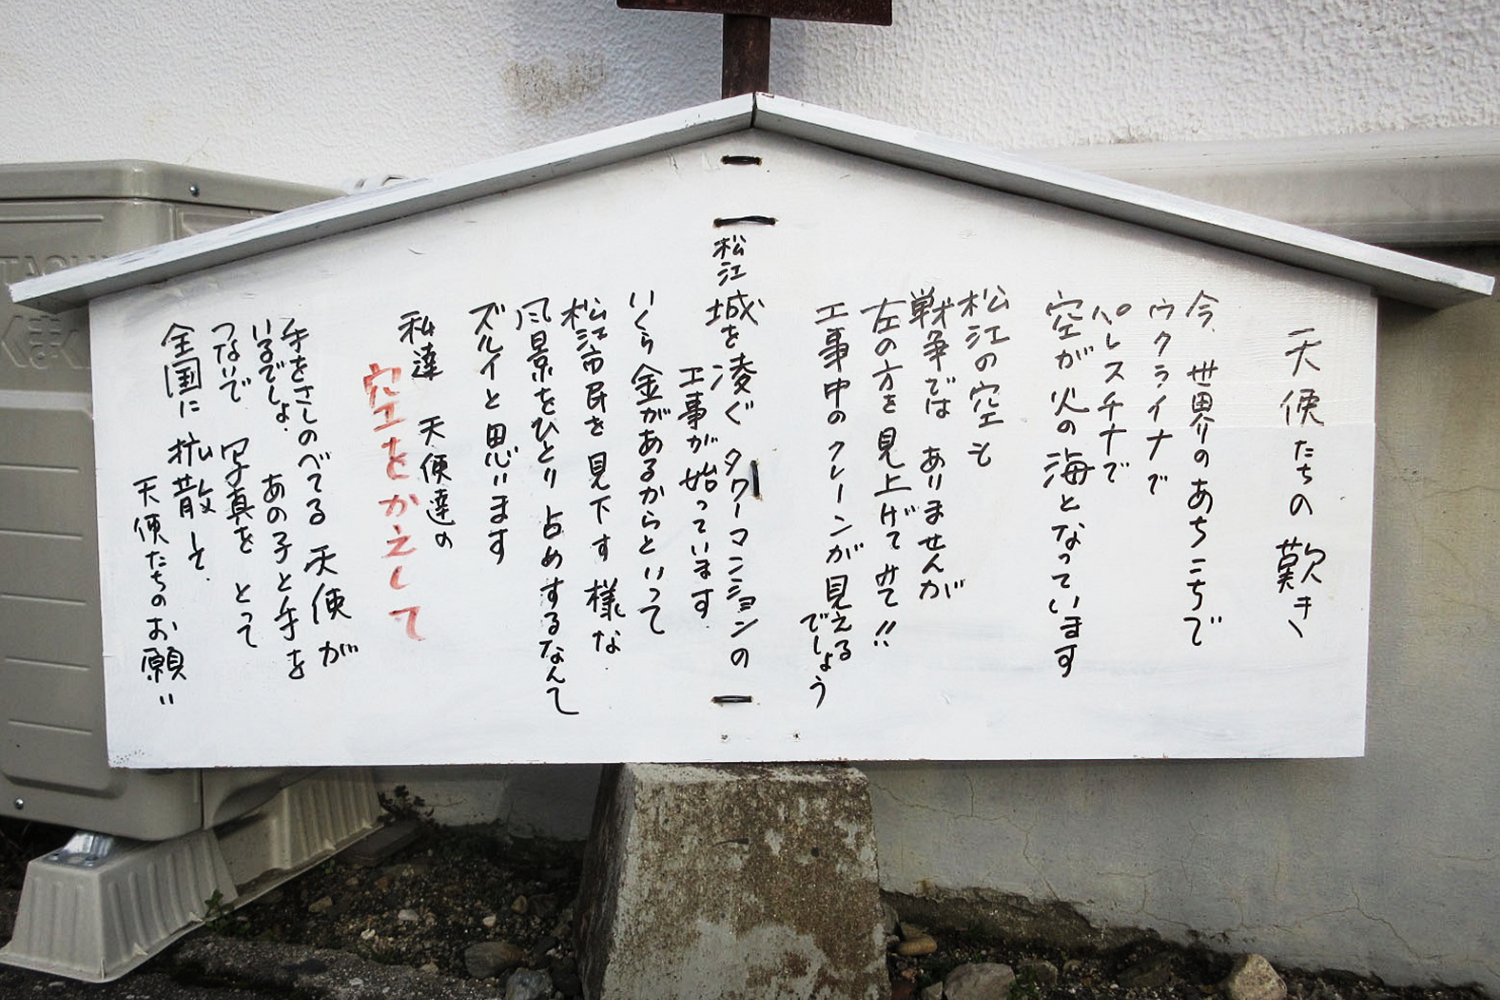 天使たちの嘆き
今、世界のあちこちで
ウクライナで
パレスチナで
空が火の海となっています
松江の空も
戦争では ありませんが
左の方を見上げてみて!!
工事中のクレーンが見える
でしょう
松江城を凌ぐタワーマンションの
工事が始っています
いくら金があるからといって
松江市民を見下す様な
風景をひとり占めするなんて
ズルイと思います
私達 天使達の
空をかえして
手をさしのべてる天使が
いるでしょ. あの子と手を
つないで 写真を とって
全国に拡散して.
天使たちのお願い